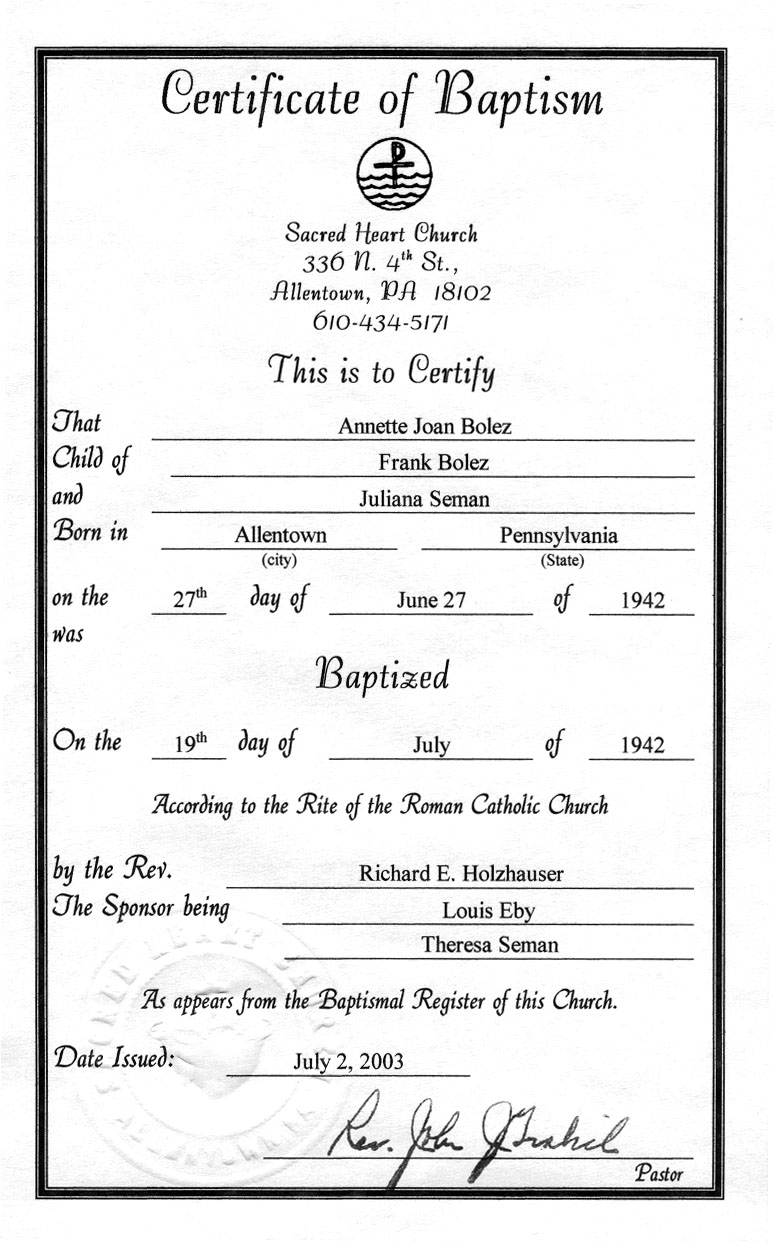 Certificate of Baptism
Sacred Heart Church
336 N. 4th St.,
Allentown, PA 18102
610-434-5171
This is to Certify
That Annette Joan Bolez
Child of Frank Bolez
and Juliana Seman
Born in Allentown Pennsylvania
(city) (State)
on the 27th day of June 27 of 1942
was
Baptized
On the 19th day of July of 1942
According to the Rite of the Roman Catholic Church
by the Rev. Richard E. Holzhauser
The Sponsor being Louis Eby
Theresa Seman
As appears from the Baptismal Register of this Church.
Date Issued: July 2, 2003
Rev. John J.
Pastor